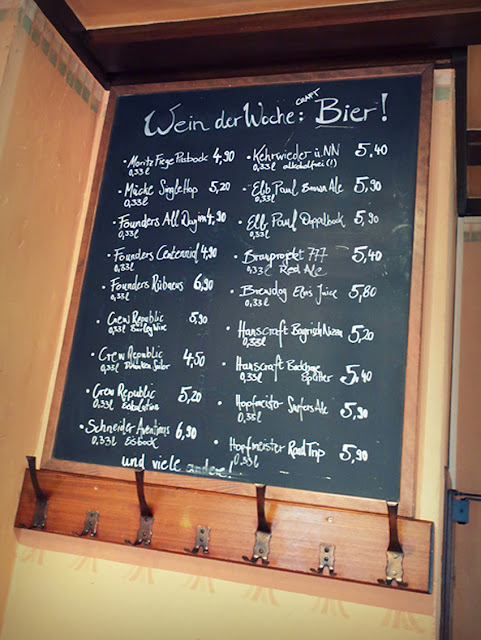 Wein der Woche: CRAFT Bier!
· Moritz Fiege Posbock 4,90
0,33l
· Mücke Single Hop 5,20
0,33l
· Founders All Day 4,90
0,33l
· Founders Centennial 4,90
0,33l
· Founders Rübaeus 6,90
0,33l
· Crew Republic 5,90
0,33l Barley Wine
· Crew Republic 4,50
0,33l
· Crew Republic 5,20
0,33l
· Schneider Aventinus 6,90
0,33l Eisbock
· Kehrwieder ü.NN 5,40
0,33l alkoholfrei (!)
· Elb Paul Brown Ale 5,90
0,33l
· Elb Paul Doppelbock 5,90
0,33l
· Brauprojekt 777 5,40
0,33l Red Ale
· Brewdog Elvis Juice 5,80
0,33l
· Hanscraft Bayrisch Nizza 5,20
0,33l
· Hanscraft Backbone 5,40
0,33l Splitter
· Hopfmeister Surfers Ale 5,90
0,33l
· Hopfmeister Road Trip 5,90
0,33l
und viele andere!